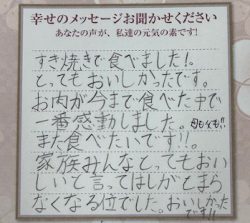 幸せのメッセージお聞かせください
あなたの声が、私達の元気の素です!
すき焼きで食べました!。
とってもおいしかったです。
お肉が今まで食べた中で
一番感動しました。
また食べたいです!!。
家族みんなとってもおい
しいと言ってはしがとまら
なくなる位でした。おいしかった
です!!